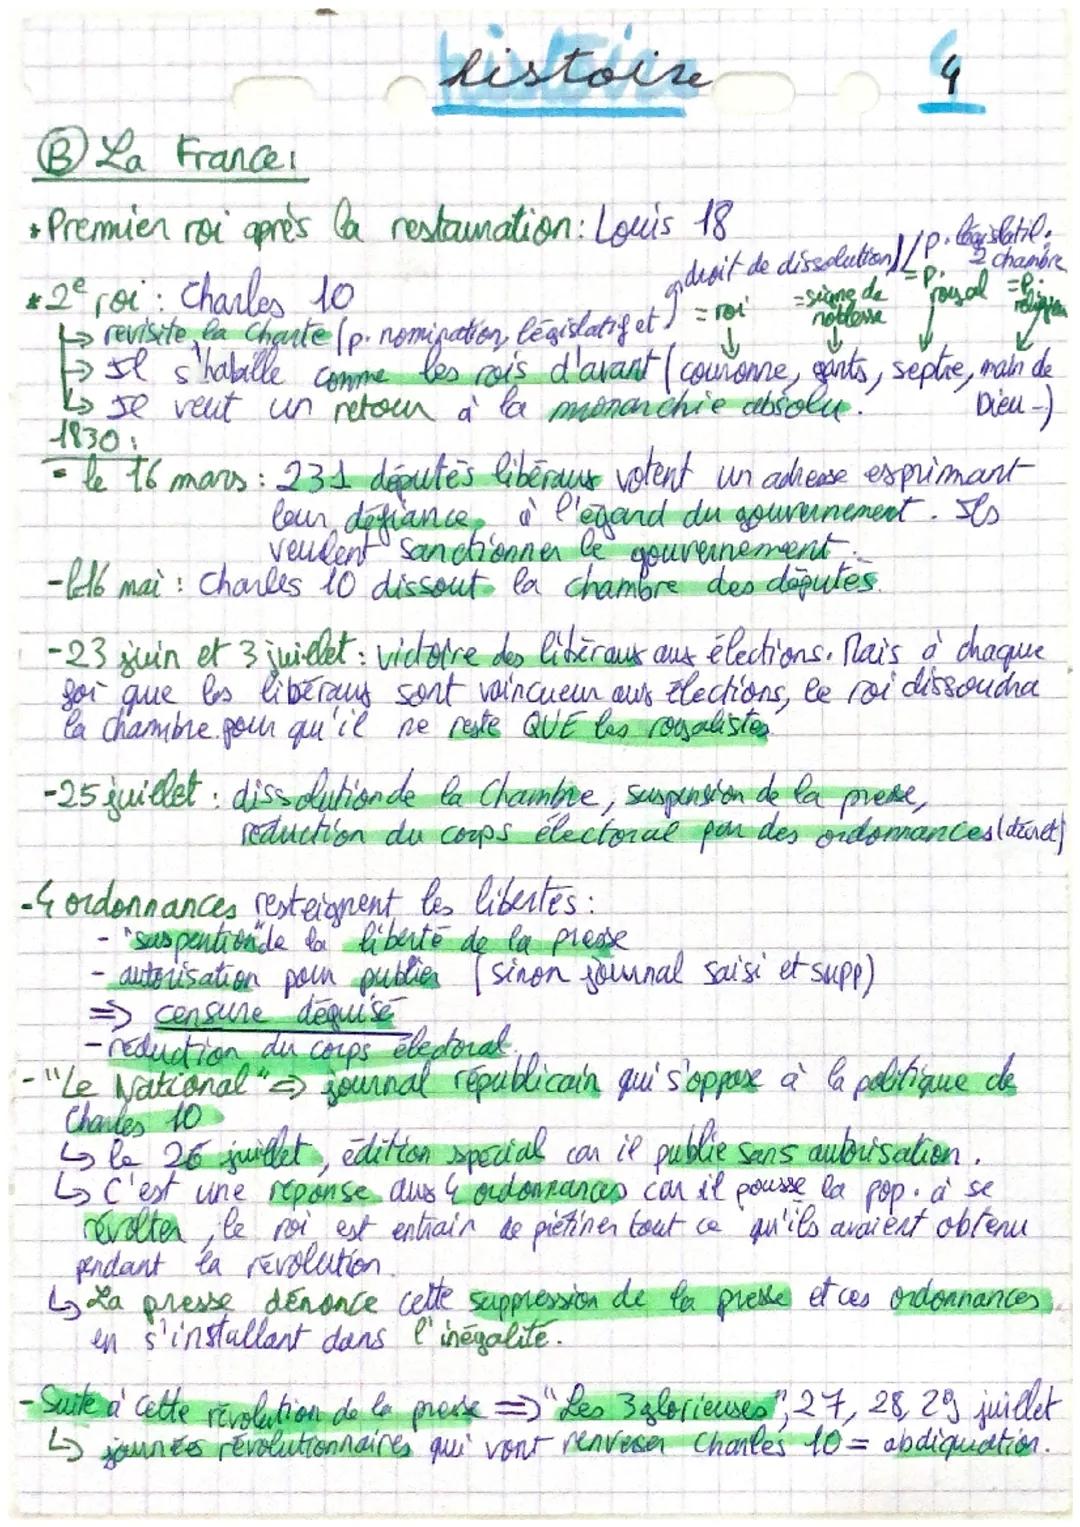 histoire 4
Ⓑ La France:
* Premier roi après la restauration: Louis 18
* 2e roi: Charles 10
↳ revisite la Charte (p. nomination, législatif et droit de dissolution) // p. législatif. 2 chambre
= roi = signe de noblesse = p. royal = p. religieux
↳ Il s'habille comme les rois d'avant (couronne, gants, septre, main de Dieu -)
↳ Il veut un retour à la monarchie absolu.
1830:
- le 16 mars: 231 députés libéraux votent un adresse esprimant
leur défiance à l'égard du gouvernement. Ils
veulent sanctionner le gouvernement.
- le 16 mai: Charles 10 dissout la chambre des députés.
- 23 juin et 3 juillet: victoire des libéraux aux élections. Mais à chaque
foi que les libéraux sont vaincueur aux élections, le roi dissoudra
la chambre pour qu'il ne reste QUE les royalistes.
- 25 juillet: dissolution de la Chambre, suspension de la presse,
réduction du corps électoral par des ordonnances (décret)
- 4 ordonnances resteignent les libertés:
- "suspention" de la liberté de la presse
- autorisation pour publier (sinon journal saisi et supp)
=> censure déguisé
- réduction du corps électoral.
- "Le National" => journal républicain qui s'oppose à la politique de
Charles 10
↳ le 26 juillet, édition spécial car il publie sans autorisation.
↳ C'est une réponse aux 4 ordonnances car il pousse la pop. à se
révolter, le roi est entrain de piétiner tout ce qu'ils avaient obtenu
pendant la révolution.
↳ La presse dénonce cette suppression de la presse et ces ordonnances
en s'installant dans l'inégalité.
- Suite à cette révolution de la presse => "Les 3 glorieuses", 27, 28, 29 juillet
↳ journées révolutionnaires qui vont renverser Charles 10 = abdiquation.